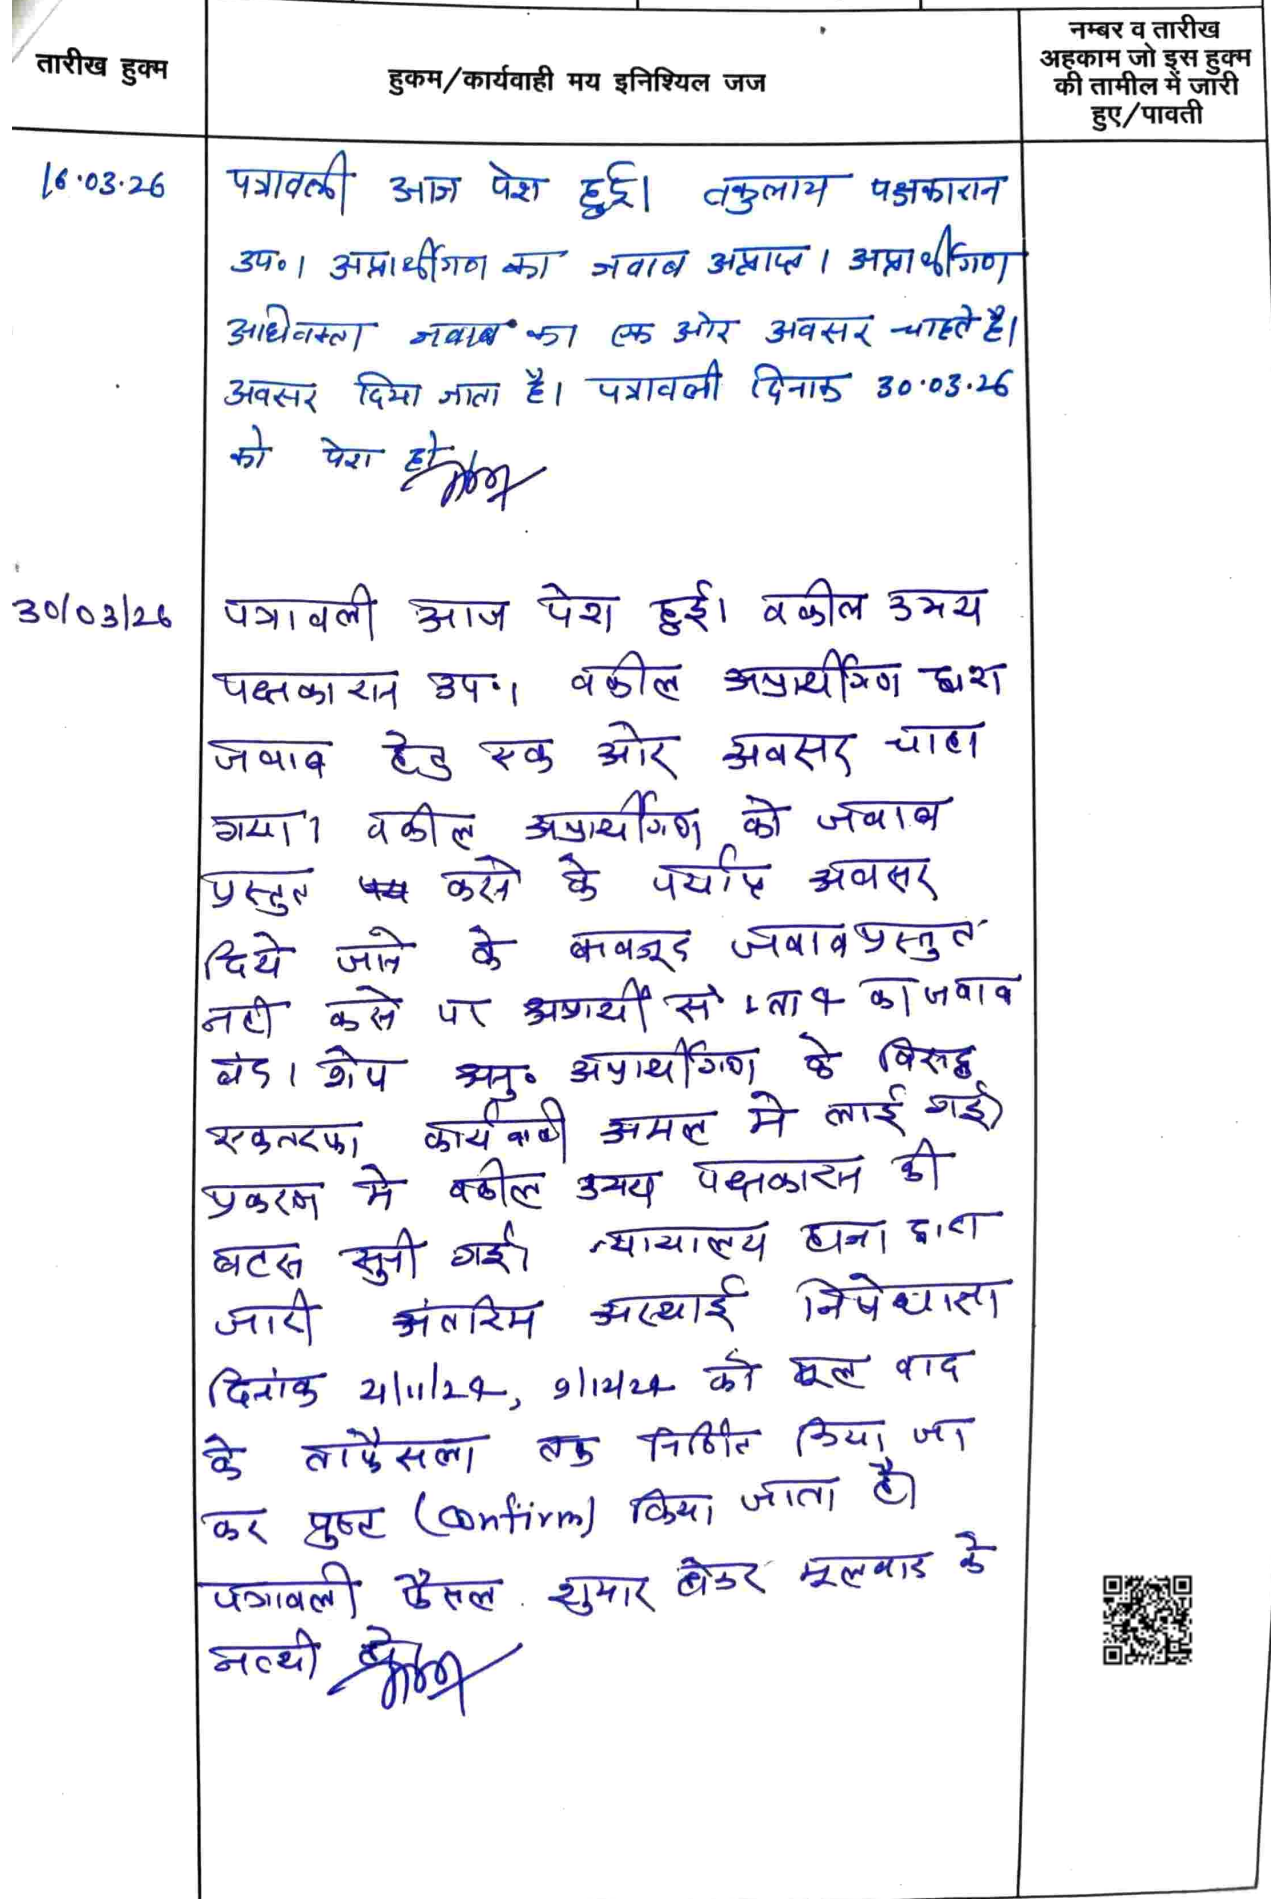 तारीख हुक्म
हुकम/कार्यवाही मय इनिश्यिल जज
नम्बर व तारीख
अहकाम जो इस हुक्म
की तामील में जारी
हुए/पावती
16.03.26
पत्रावली आज पेश हुई। वकुलाय पक्षकारान
उप०। अप्रार्थीगण का जवाब अप्राप्त। अप्रार्थीगण
अधिवक्ता जवाब का एक ओर अवसर चाहते है।
अवसर दिया जाता है। पत्रावली दिनांक 30.03.26
को पेश हो
30/03/26
पत्रावली आज पेश हुई। वकील उभय
पक्षकारान उप०। वकील अप्रार्थीगण द्वारा
जवाब हेतु एक ओर अवसर चाहा
गया। वकील अप्रार्थीगण को जवाब
प्रस्तुत करने के पर्याप्त अवसर
दिये जाने के बावजूद जवाब प्रस्तुत
नही करने पर अप्रार्थी सं० 1 ता 4 का जवाब
बंद। शेष अनु० अप्रार्थीगण के विरुद्ध
एकतरफा कार्यवाही अमल मे लाई गई।
प्रकरण मे वकील उभय पक्षकारान की
बहस सुनी गई। न्यायालय हाजा द्वारा
जारी अंतरिम अस्थाई निषेधाज्ञा
दिनांक को मूल वाद
के ताफैसला तक किया जा
कर पुष्ट (confirm) किया जाता है।
पत्रावली फैसल शुमार होकर मूलवाद के
नत्थी हो